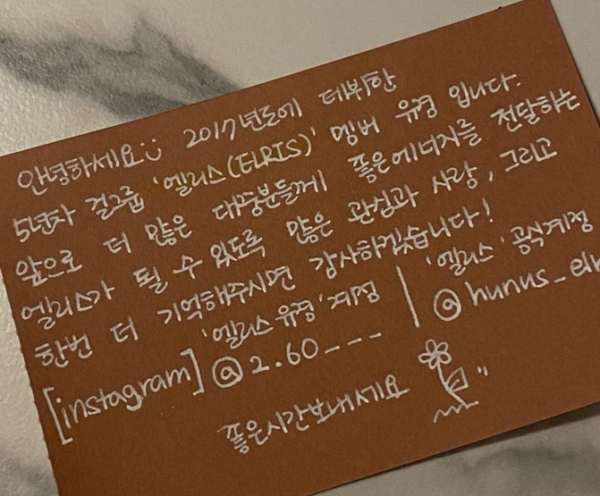 안녕하세요:) 2017년도에 데뷔한
5년차 걸그룹 '엘리스(ELRIS)' 멤버 유경 입니다.
앞으로 더 많은 대중분들께 좋은에너지를 전달하는
엘리스가 될 수 있도록 많은 관심과 사랑, 그리고
한번 더 기억해주시면 감사하겠습니다!
'엘리스 유경' 계정 | '엘리스' 공식계정
[instagram] @2.60___ @hunus_elr
좋은시간보내세요